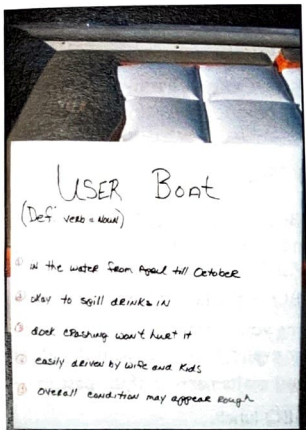 USER BOAT
(Def: verb = NOUN)
① in the water from April till October
② okay to spill drinks in
③ dock crashing won't hurt it
④ easily driven by wife and kids
⑤ overall condition may appear rough